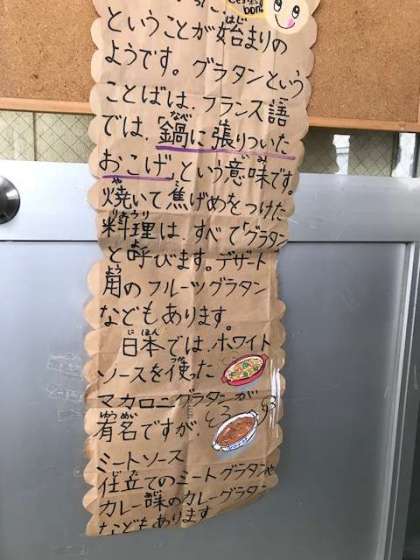 ということが始まりの
ようです。グラタンという
ことばは、フランス語
では、「鍋に張りついた
おこげ」という意味です。
焼いて焦げめをつけた
料理は、すべて「グラタン
と呼びます。デザート
用のフルーツグラタン
などもあります。
日本では、ホワイト
ソースを使った
マカロニグラタンが
有名ですが、
ミートソース
仕立てのミートグラタンや
カレー味のカレーグラタン
などもあります